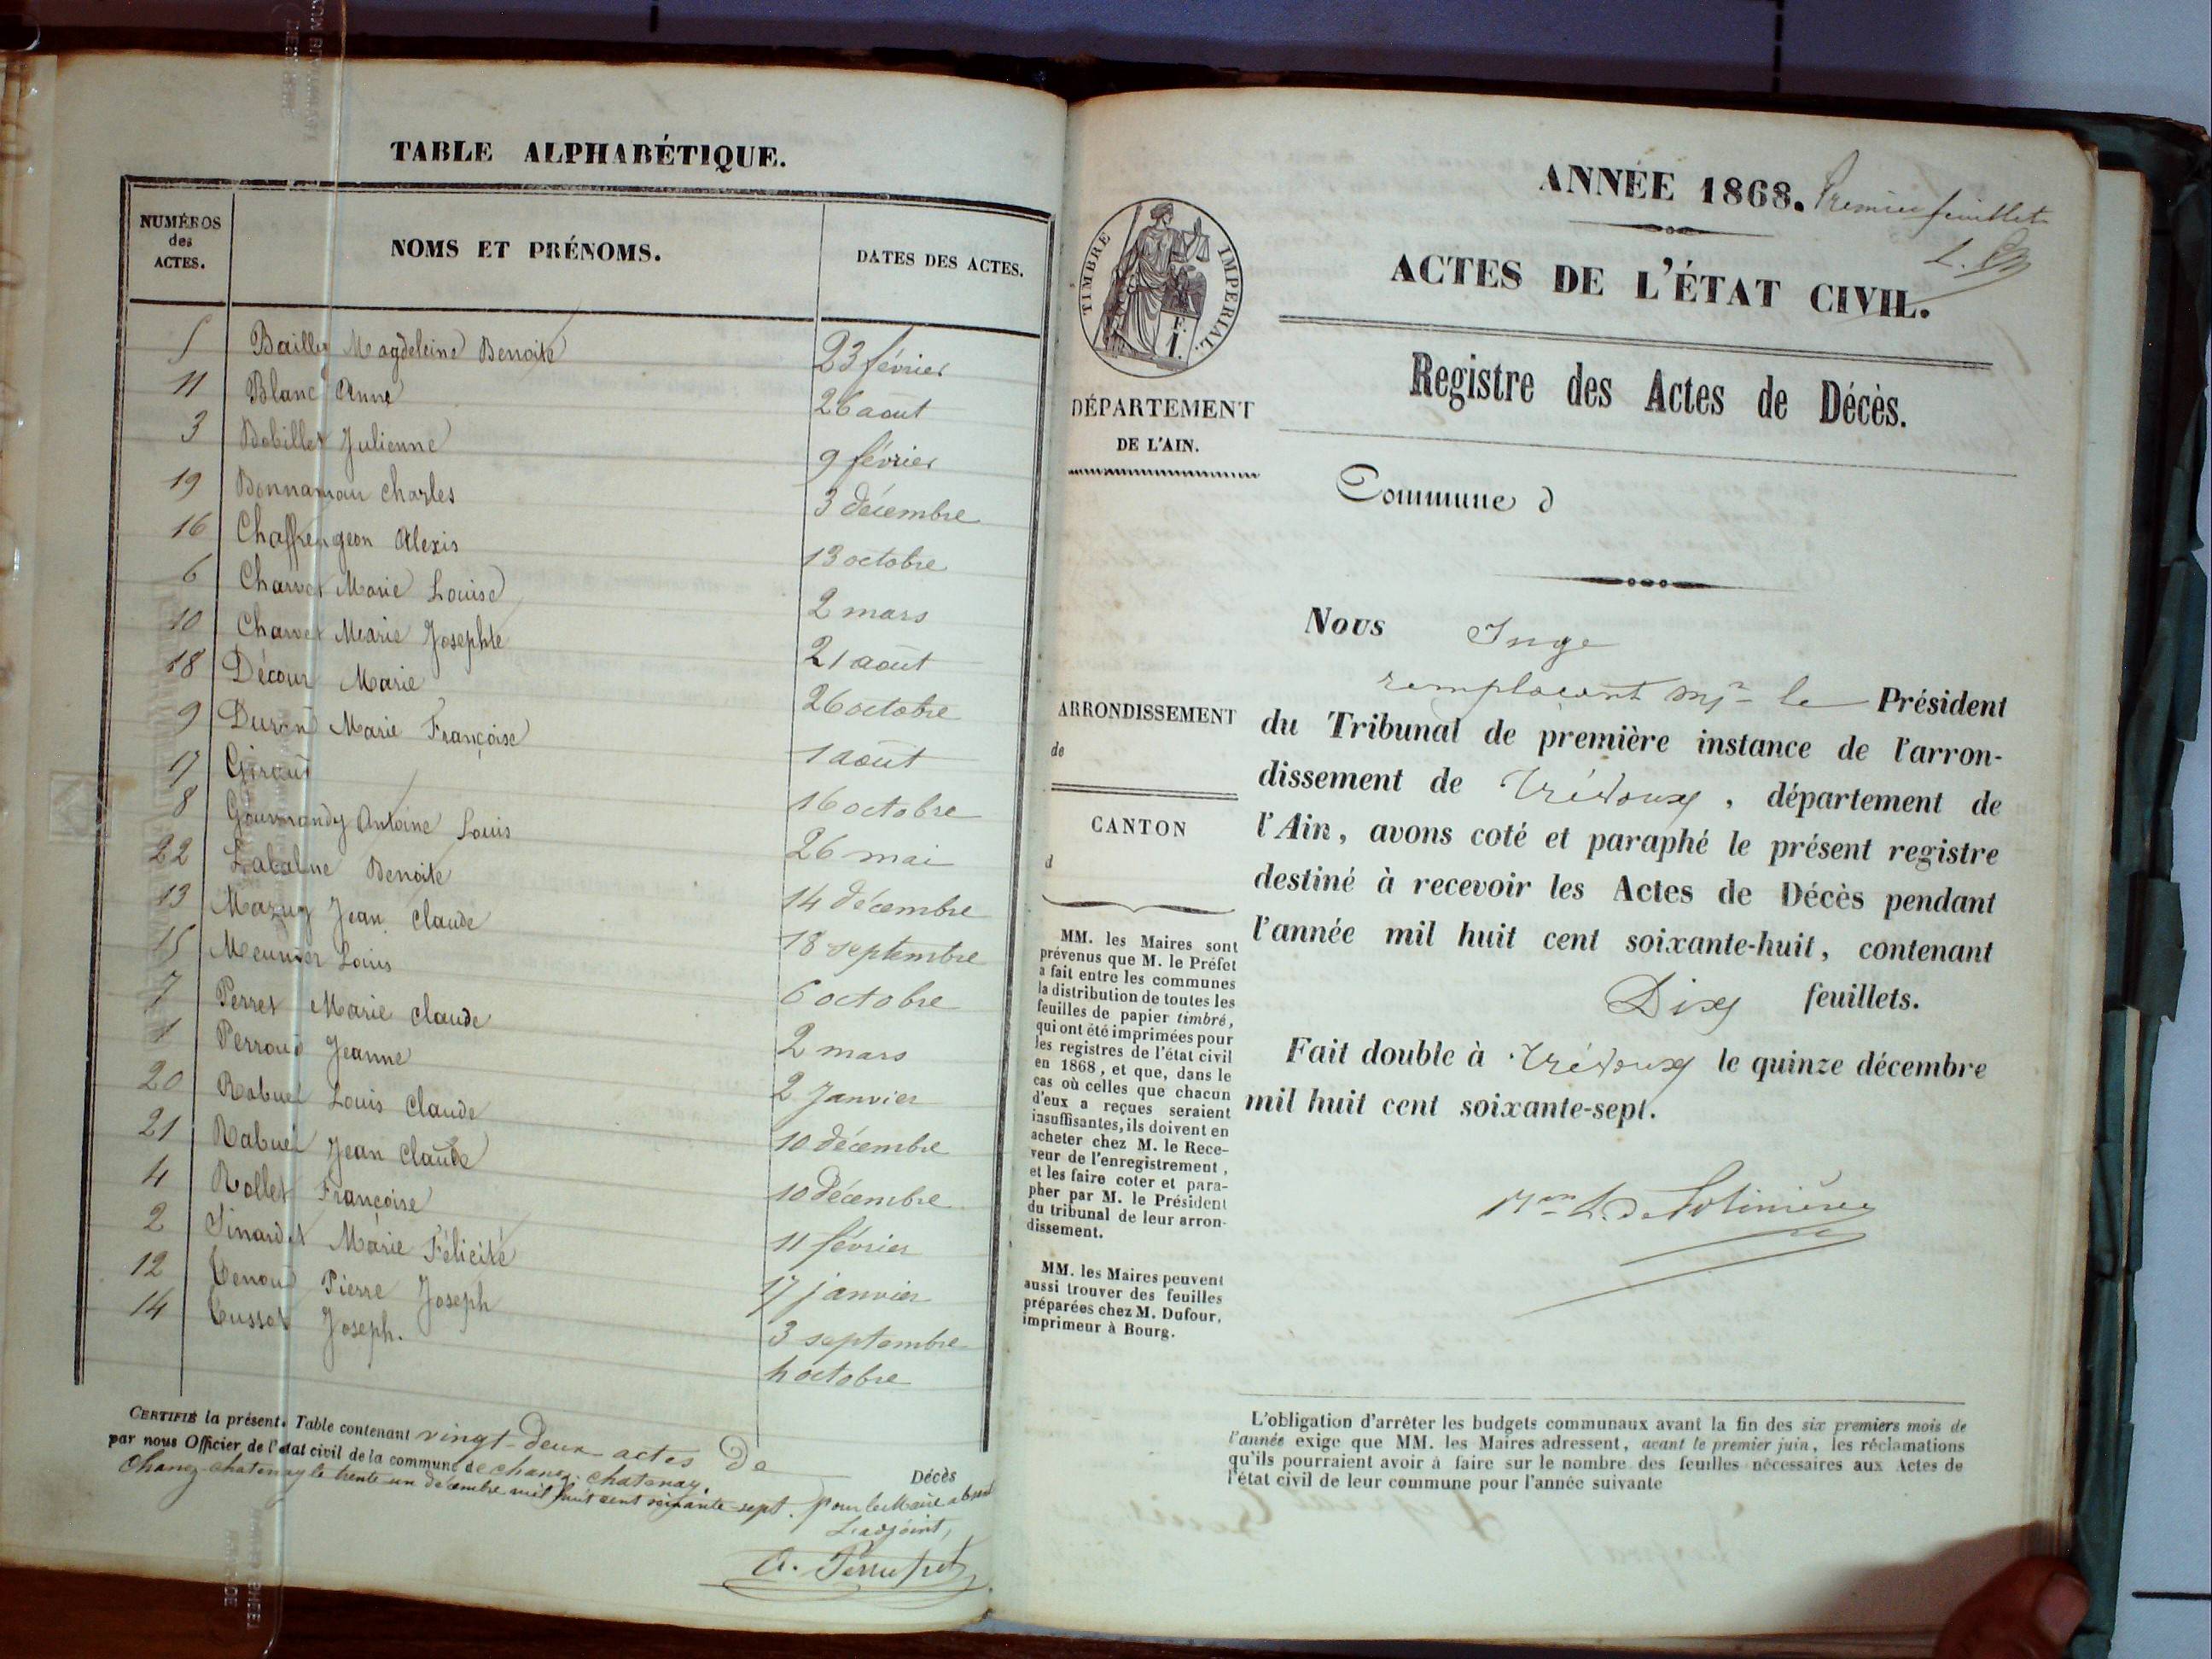 TABLE ALPHABÉTIQUE.
NUMÉROS des ACTES. NOMS ET PRÉNOMS. DATES DES ACTES.
5 Bailly Magdeleine Benoite 23 février
11 Blanc Anne 26 aout
3 Bobillet Julienne 9 février
19 Bonnamour Charles 3 décembre
16 Chaffengeon Alexis 13 octobre
6 Charvet Marie Louise 2 mars
10 Charvet Marie Josephte 21 août
18 Décour Marie 26 octobre
9 Durand Marie Françoise 1 août
17 Giroud 16 octobre
8 Gourmandy Antoine Louis 26 mai
22 Labalme Benoite 14 décembre
13 Mazuy Jean Claude 18 septembre
15 Meunier Louis 6 octobre
7 Perret Marie Claude 2 mars
1 Perroud Jeanne 2 Janvier
20 Rabuel Louis Claude 10 décembre
21 Rabuel Jean Claude 10 décembre
4 Rollet Françoise 11 février
2 Sinardet Marie Félicité 17 janvier
12 Tenoud Pierre Joseph 3 septembre
14 Tussot Joseph. 4 octobre
CERTIFIÉ la présente Table contenant vingt-deux actes de Décès
par nous Officier de l'état civil de la commune de Chanoz-Chatenay.
Chanoz-Chatenay le trente-un décembre mil huit cent soixante-sept. Pour le Maire absent
L'adjoint,
ANNÉE 1868. Premier feuillet
ACTES DE L'ÉTAT CIVIL.
TIMBRE IMPERIAL.
1 F.
Registre des Actes de Décès.
DÉPARTEMENT
DE L'AIN.
Commune d
Nous Inge
remplaçant Mr le Président
du Tribunal de première instance de l'arron-
dissement de Trévoux, département de
l'Ain, avons coté et paraphé le présent registre
destiné à recevoir les Actes de Décès pendant
l'année mil huit cent soixante-huit, contenant
Dix feuillets.
Fait double à Trévoux le quinze décembre
mil huit cent soixante-sept.
ARRONDISSEMENT
de
CANTON
d
MM. les Maires sont
prévenus que M. le Préfet
a fait entre les communes
la distribution de toutes les
feuilles de papier timbré,
qui ont été imprimées pour
les registres de l'état civil
en 1868, et que, dans le
cas où celles que chacun
d'eux a reçues seraient
insuffisantes, ils doivent en
acheter chez M. le Rece-
veur de l'enregistrement,
et les faire coter et para-
pher par M. le Président
du tribunal de leur arron-
dissement.
MM. les Maires peuvent
aussi trouver des feuilles
préparées chez M. Dufour,
imprimeur à Bourg.
L'obligation d'arrêter les budgets communaux avant la fin des six premiers mois de
l'année exige que MM. les Maires adressent, avant le premier juin, les réclamations
qu'ils pourraient avoir à faire sur le nombre des feuilles nécessaires aux Actes de
l'état civil de leur commune pour l'année suivante